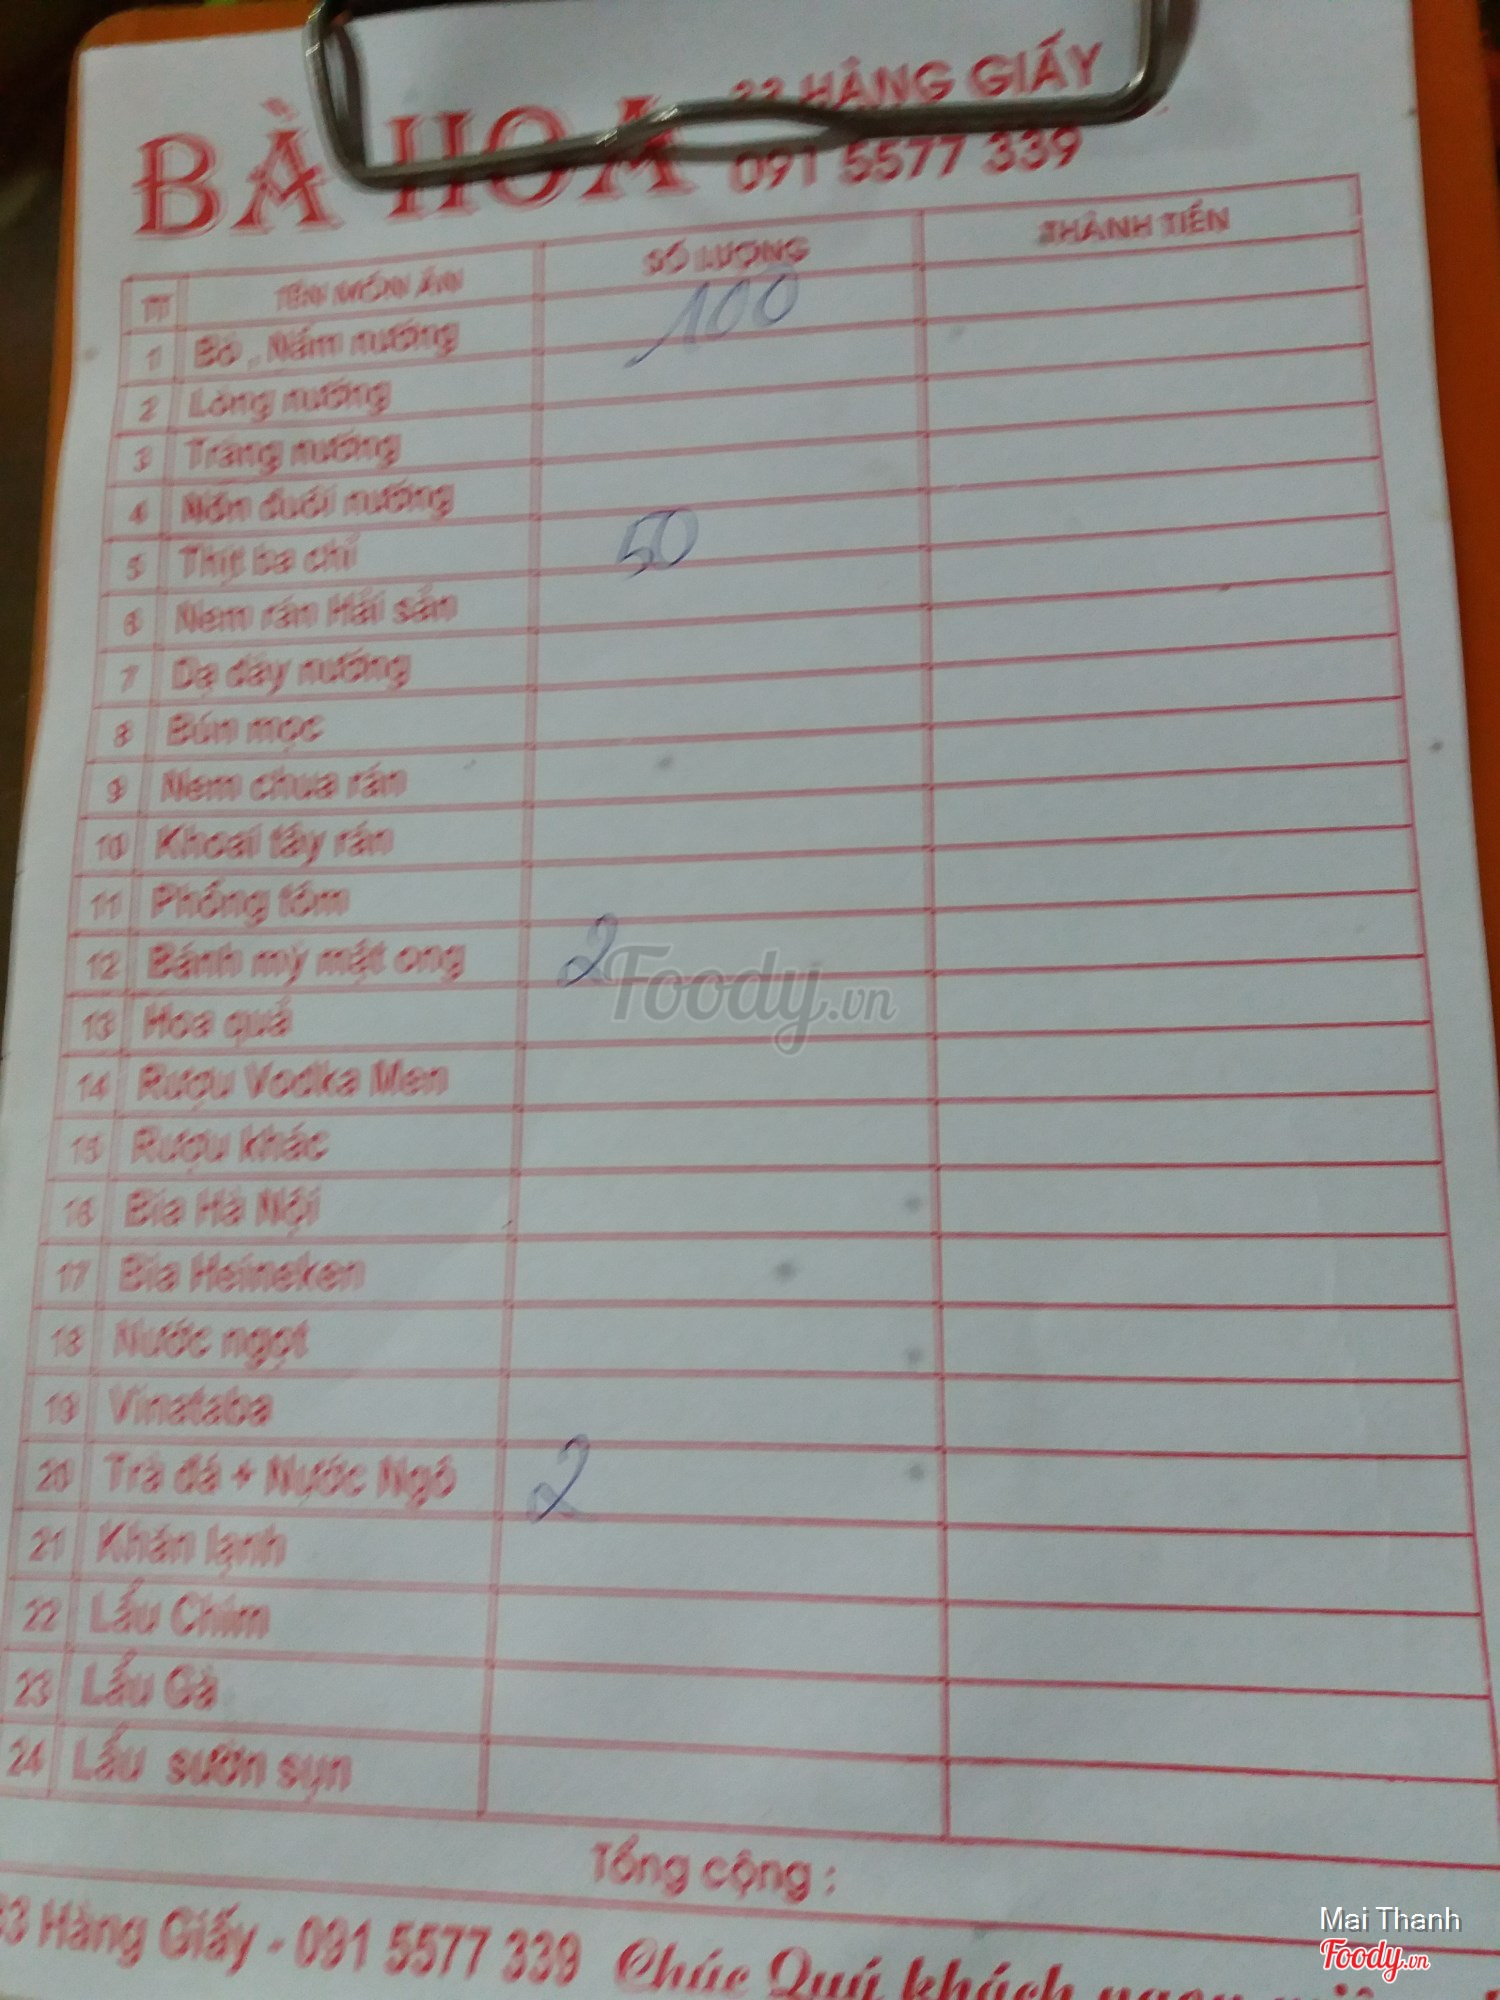 BÀ HOA
33 HÀNG GIẤY
091 5577 339
TT TÊN MÓN ĂN SỐ LƯỢNG THÀNH TIỀN
1 Bò, Nấm nướng 100
2 Lòng nướng
3 Tràng nướng
4 Nõn đuôi nướng
5 Thịt ba chỉ 50
6 Nem rán Hải sản
7 Dạ dày nướng
8 Bún mọc
9 Nem chua rán
10 Khoai tây rán
11 Phồng tôm
12 Bánh mỳ mật ong 2
13 Hoa quả
14 Rượu Vodka Men
15 Rượu khác
16 Bia Hà Nội
17 Bia Heineken
18 Nước ngọt
19 Vinataba
20 Trà đá + Nước Ngô 2
21 Khăn lạnh
22 Lẩu Chim
23 Lẩu Gà
24 Lẩu sườn sụn
Tổng cộng :
33 Hàng Giấy - 091 5577 339 Chúc Quý khách ngon
Foody.vn
Mai Thanh
Foody.vn